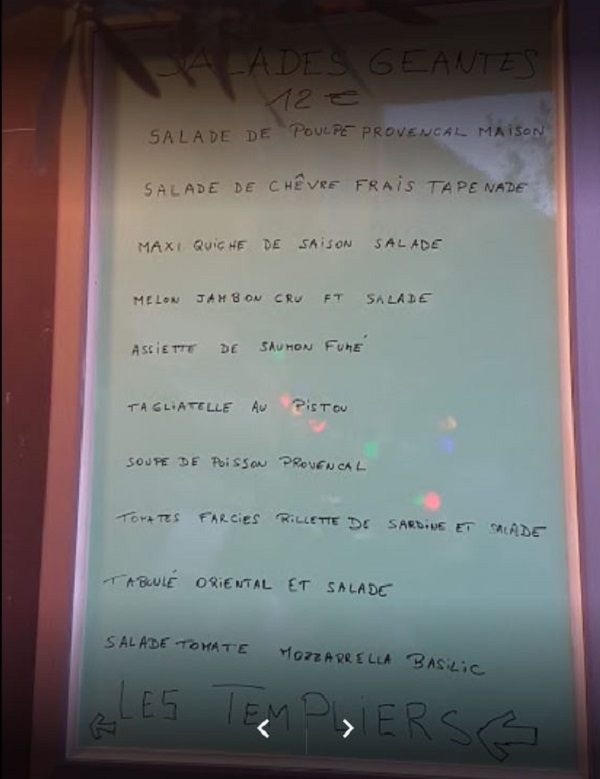 SALADES GEANTES
12 €
SALADE DE POULPE PROVENCAL MAISON
SALADE DE CHÊVRE FRAIS TAPENADE
MAXI QUICHE DE SAISON SALADE
MELON JAMBON CRU ET SALADE
ASSIETTE DE SAUMON FUMÉ
TAGLIATELLE AU PISTOU
SOUPE DE POISSON PROVENCAL
TOMATES FARCIES RILLETTE DE SARDINE ET SALADE
TABOULÉ ORIENTAL ET SALADE
SALADE TOMATE MOZZARRELLA BASILIC
LES TEMPLIERS